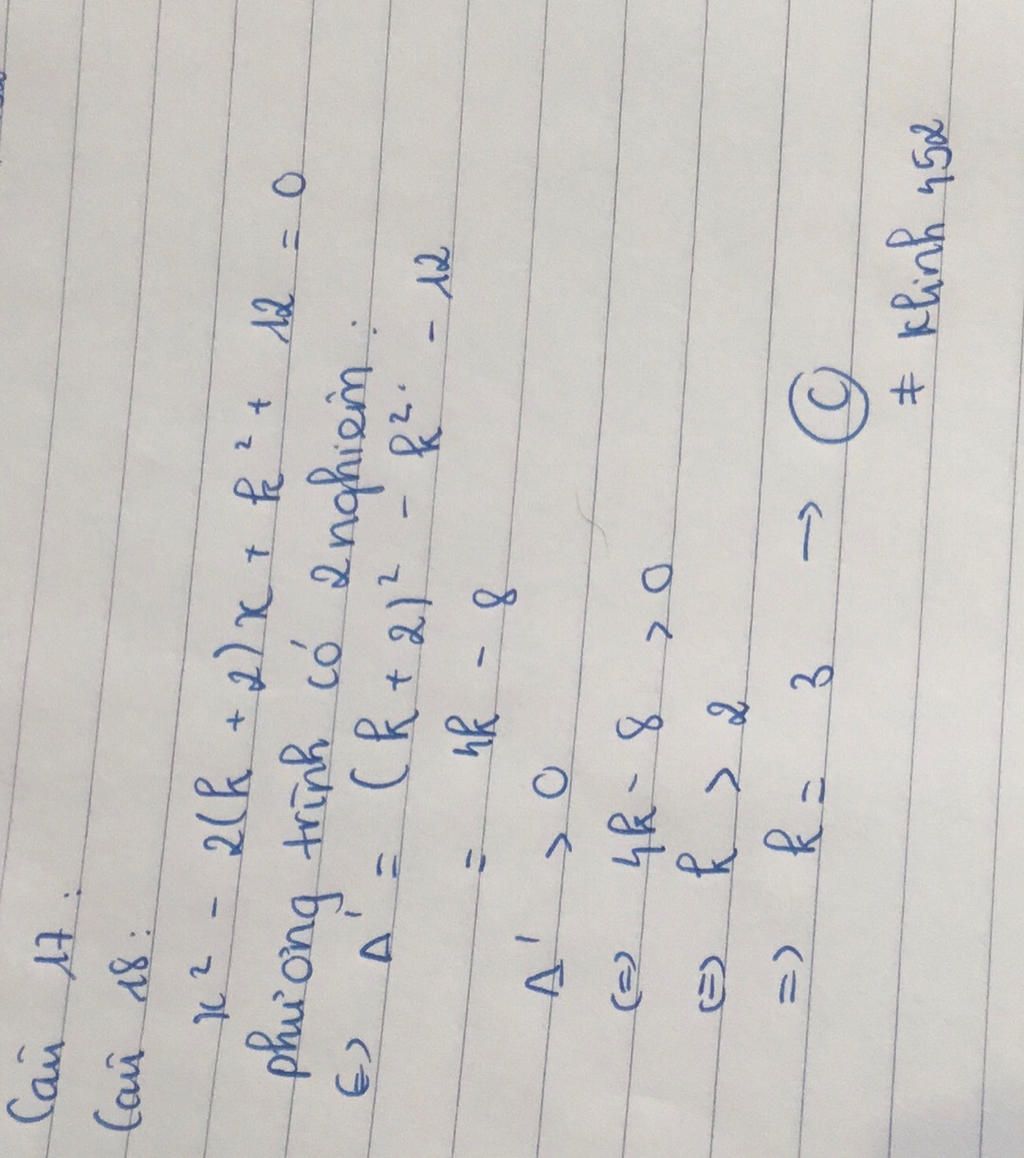 Câu 17:
Câu 18:
x² - 2(k + 2)x + k² + 12 = 0
phương trình có 2 nghiệm:
(=) Δ' = (k + 2)² - k² - 12
= 4k - 8
Δ' > 0
(=) 4k - 8 > 0
(=) k > 2
=> k = 3 → C
# Khinh 452